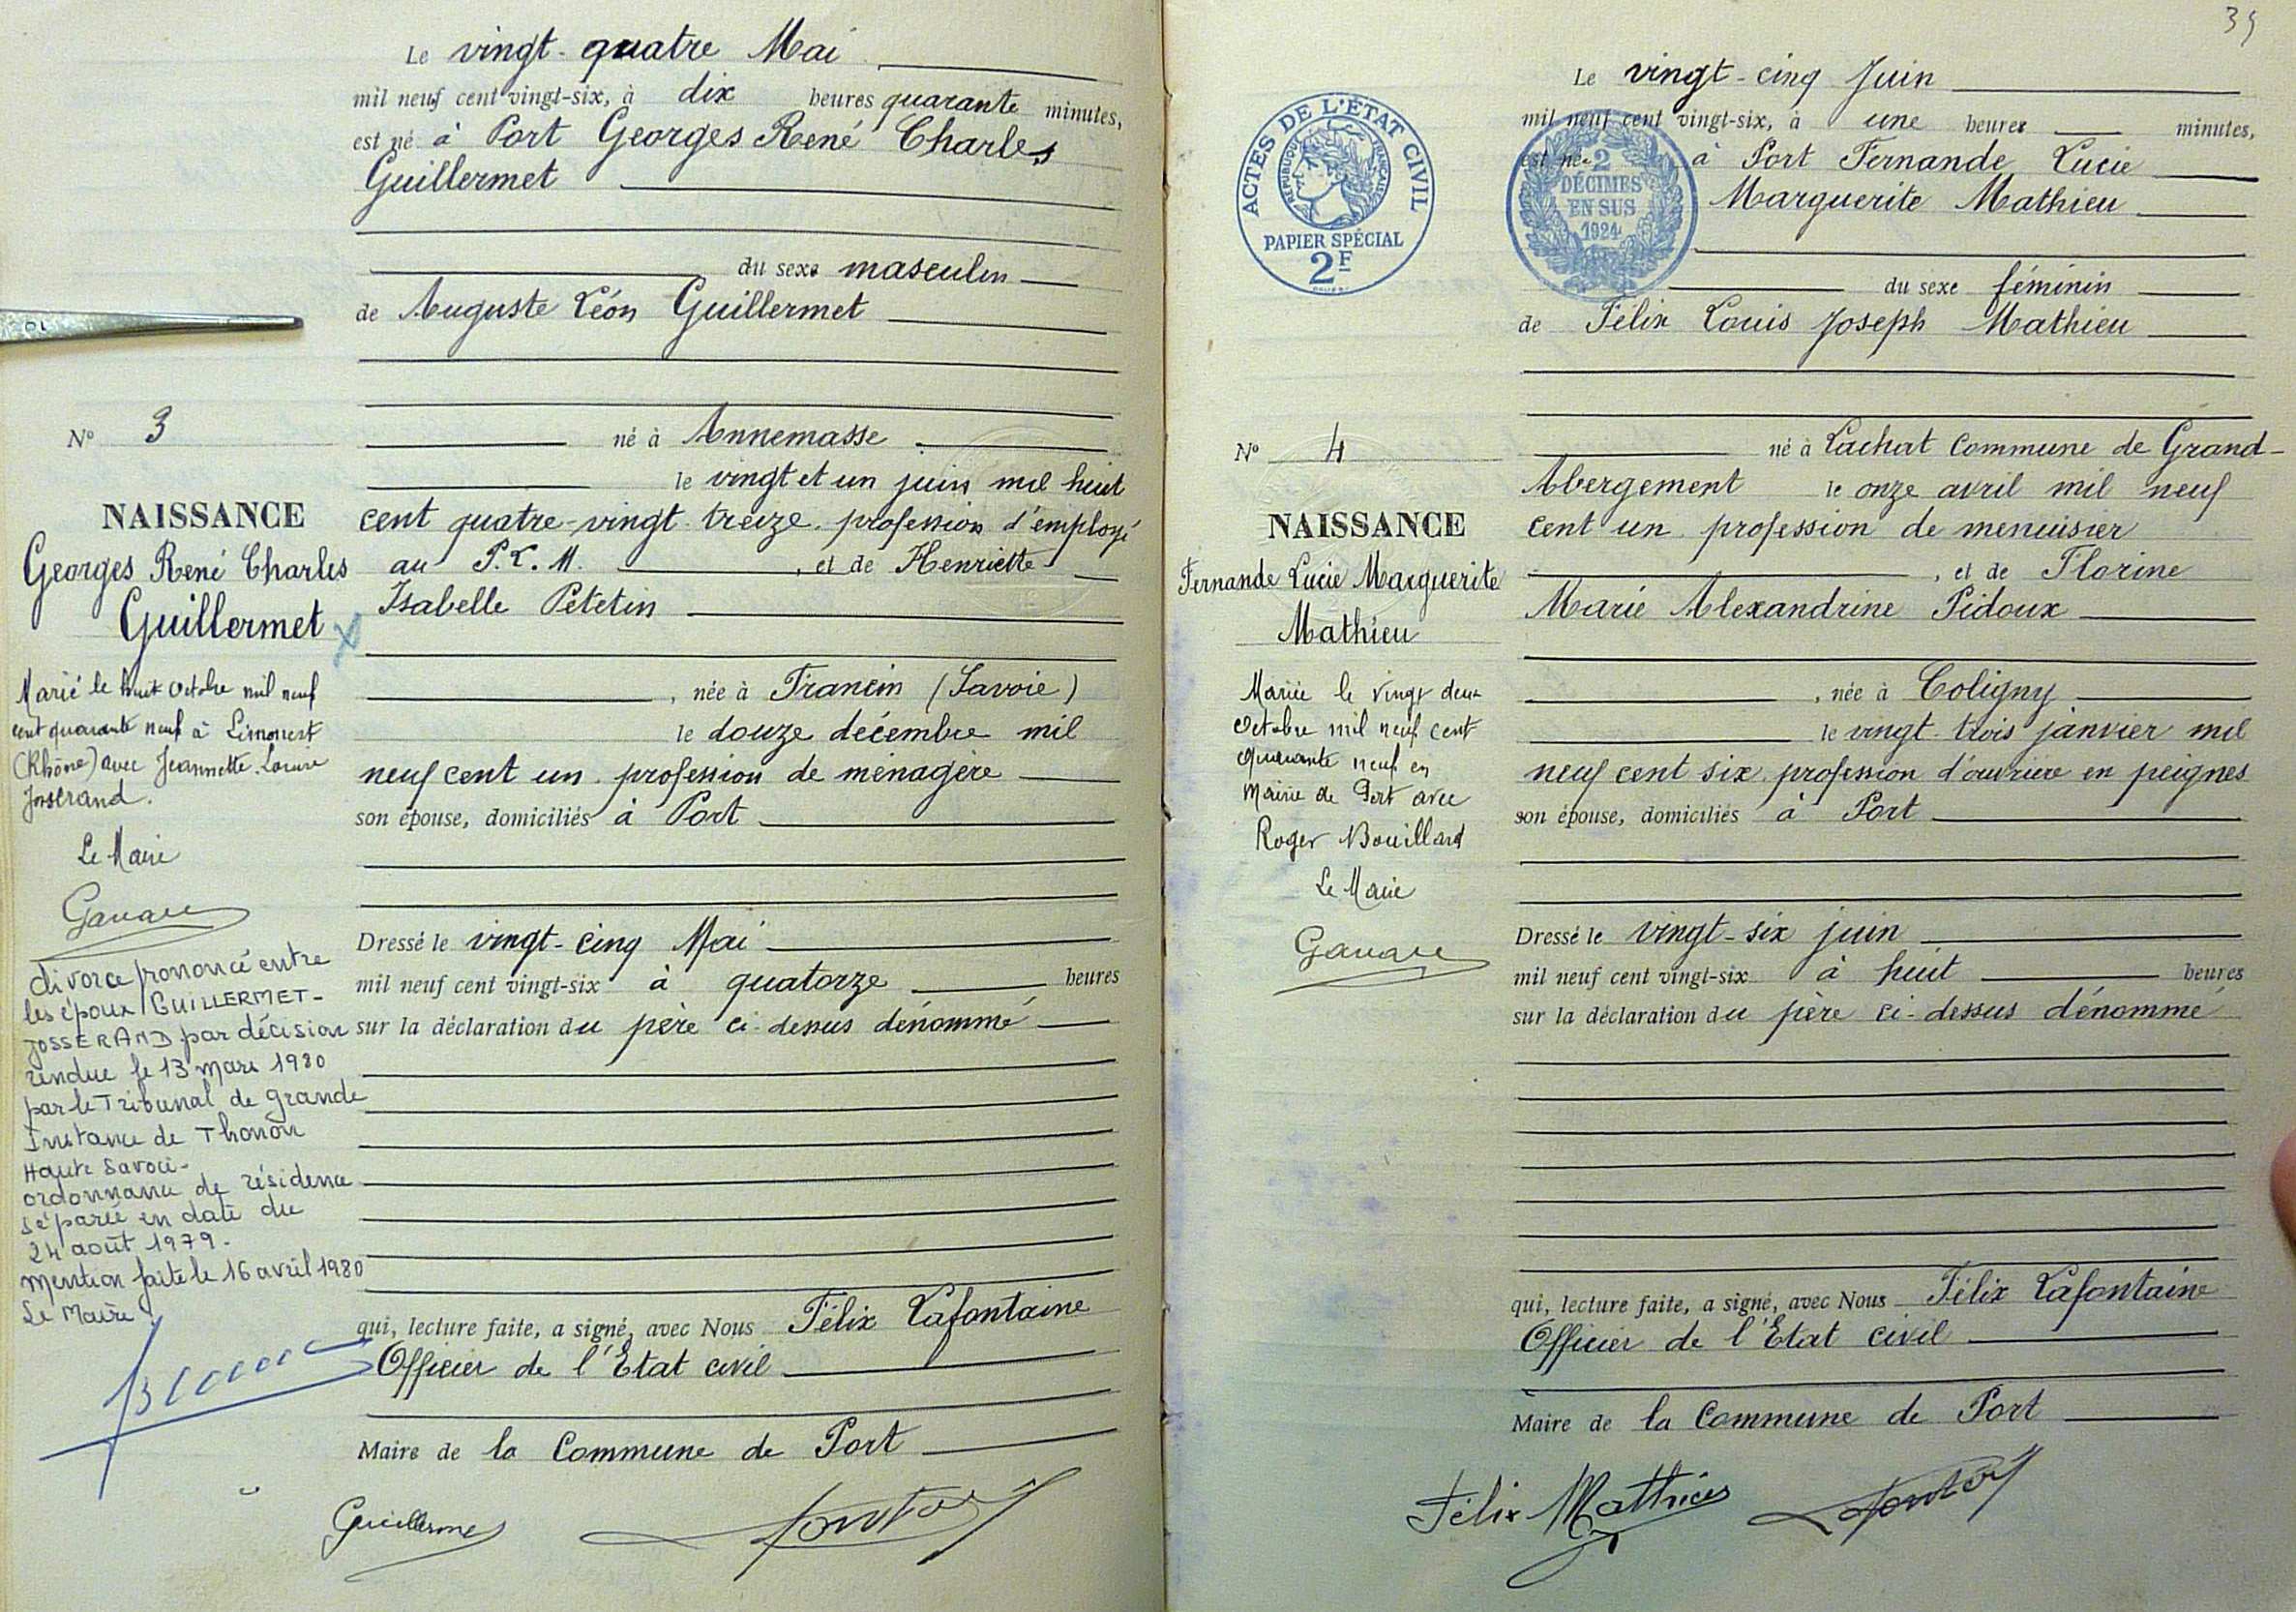 Le vingt-quatre Mai
mil neuf cent vingt-six, à dix heures quarante minutes,
est né à Port Georges René Charles
Guillermet
du sexe masculin
de Auguste Léon Guillermet
N° 3
né à Annemasse
le vingt et un juin mil huit
NAISSANCE
cent quatre-vingt treize. profession d'employé
Georges René Charles
au P.L.M. , et de Henriette
Guillermet
Isabelle Petetin
Marié le huit Octobre mil neuf
cent quarante neuf à Limonest
(Rhône) avec Jeannette
Josserand.
Le Maire
née à Francin (Savoie)
le douze décembre mil
neuf cent un. profession de ménagère
son épouse, domiciliés à Port
Dressé le vingt-cinq Mai
mil neuf cent vingt-six à quatorze heures
sur la déclaration du père ci-dessus dénommé
divorce prononcé entre
les époux GUILLERMET-
JOSSERAND par décision
rendue le 13 mars 1980
par le Tribunal de grande
Instance de Thonon
Haute Savoie-
ordonnance de résidence
séparée en date du
24 août 1979.
Mention faite le 16 avril 1980
Le Maire
qui, lecture faite, a signé, avec Nous Félix Lafontaine
Officier de l'Etat civil
Maire de la Commune de Port
Guillermet
39
Le vingt-cinq Juin
mil neuf cent vingt-six, à une heures minutes,
est née à Port Fernande Lucie
Marguerite Mathieu
ACTES DE L'ÉTAT CIVIL
RÉPUBLIQUE FRANÇAISE
PAPIER SPÉCIAL
2F
2
DÉCIMES
EN SUS
1924
du sexe féminin
de Félix Louis Joseph Mathieu
N° 4
né à Lachat Commune de Grand-
Abergement le onze avril mil neuf
NAISSANCE
cent un. profession de menuisier
Fernande Lucie Marguerite
, et de Florine
Mathieu
Marie Alexandrine Pidoux
Mariée le vingt deux
Octobre mil neuf cent
quarante neuf en
Mairie de Port avec
Roger Bouillard
Le Maire
, née à Coligny
le vingt-trois janvier mil
neuf cent six. profession d'ouvrière en peignes
son épouse, domiciliés à Port
Dressé le vingt-six juin
mil neuf cent vingt-six à huit heures
sur la déclaration du père ci-dessus dénommé
qui, lecture faite, a signé, avec Nous Félix Lafontaine
Officier de l'Etat civil
Maire de la Commune de Port
Félix Mathieu